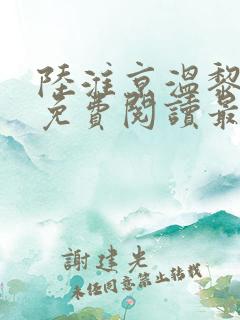 陸淮京溫黎
免費閱讀最
謝建光
未經同意禁止轉載